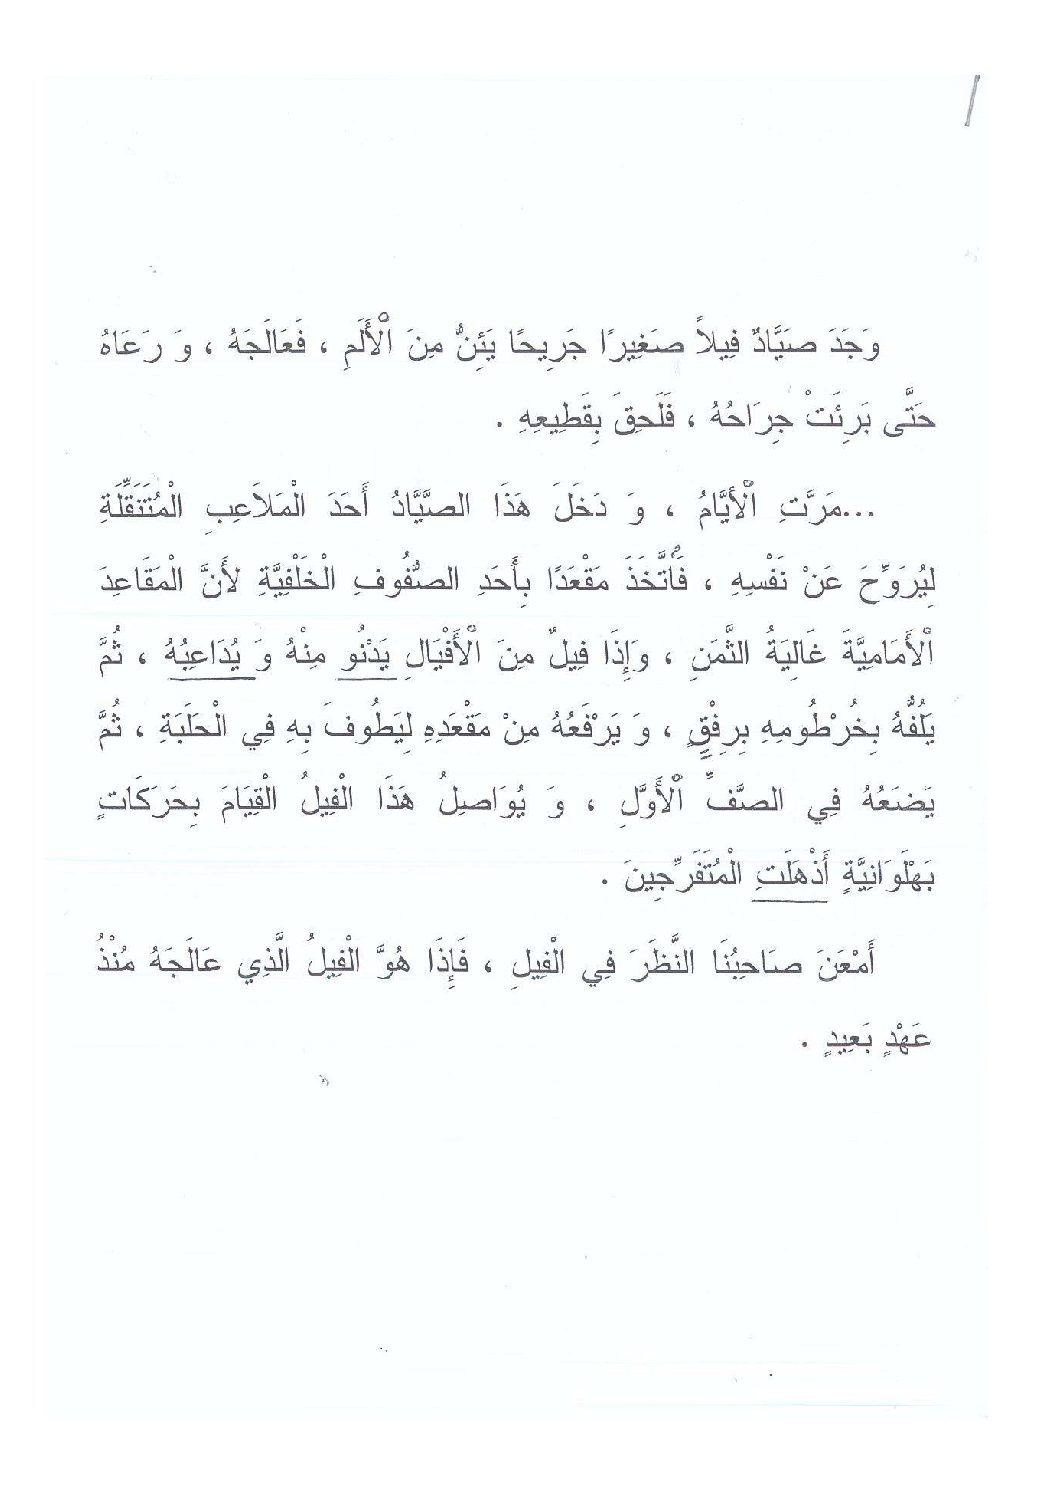 وَجَدَ صَيَّادٌ فِيلاً صَغِيرًا جَرِيحًا يَئِنُّ مِنَ الْأَلَمِ ، فَعَالَجَهُ ، وَ رَعَاهُ
حَتَّى بَرِئَتْ جِرَاحُهُ ، فَلَحِقَ بِقَطِيعِهِ .
...مَرَّتِ الْأَيَّامُ ، وَ دَخَلَ هَذَا الصَّيَّادُ أَحَدَ الْمَلاَعِبِ الْمُتَنَقِّلَةِ
لِيُرَوِّحَ عَنْ نَفْسِهِ ، فَاتَّخَذَ مَقْعَدًا بِأَحَدِ الصُّفُوفِ الْخَلْفِيَّةِ لأَنَّ الْمَقَاعِدَ
الْأَمَامِيَّةَ غَالِيَةُ الثَّمَنِ ، وَإِذَا فِيلٌ مِنَ الْأَفْيَالِ يَدْنُو مِنْهُ وَ يُدَاعِبُهُ ، ثُمَّ
يَلُفُّهُ بِخُرْطُومِهِ بِرِفْقٍ ، وَ يَرْفَعُهُ مِنْ مَقْعَدِهِ لِيَطُوفَ بِهِ فِي الْحَلَبَةِ ، ثُمَّ
يَضَعُهُ فِي الصَّفِّ الْأَوَّلِ ، وَ يُوَاصِلُ هَذَا الْفِيلُ الْقِيَامَ بِحَرَكَاتٍ
بَهْلَوَانِيَّةٍ أَذْهَلَتِ الْمُتَفَرِّجِينَ .
أَمْعَنَ صَاحِبُنَا النَّظَرَ فِي الْفِيلِ ، فَإِذَا هُوَّ الْفِيلُ الَّذِي عَالَجَهُ مُنْذُ
عَهْدٍ بَعِيدٍ .